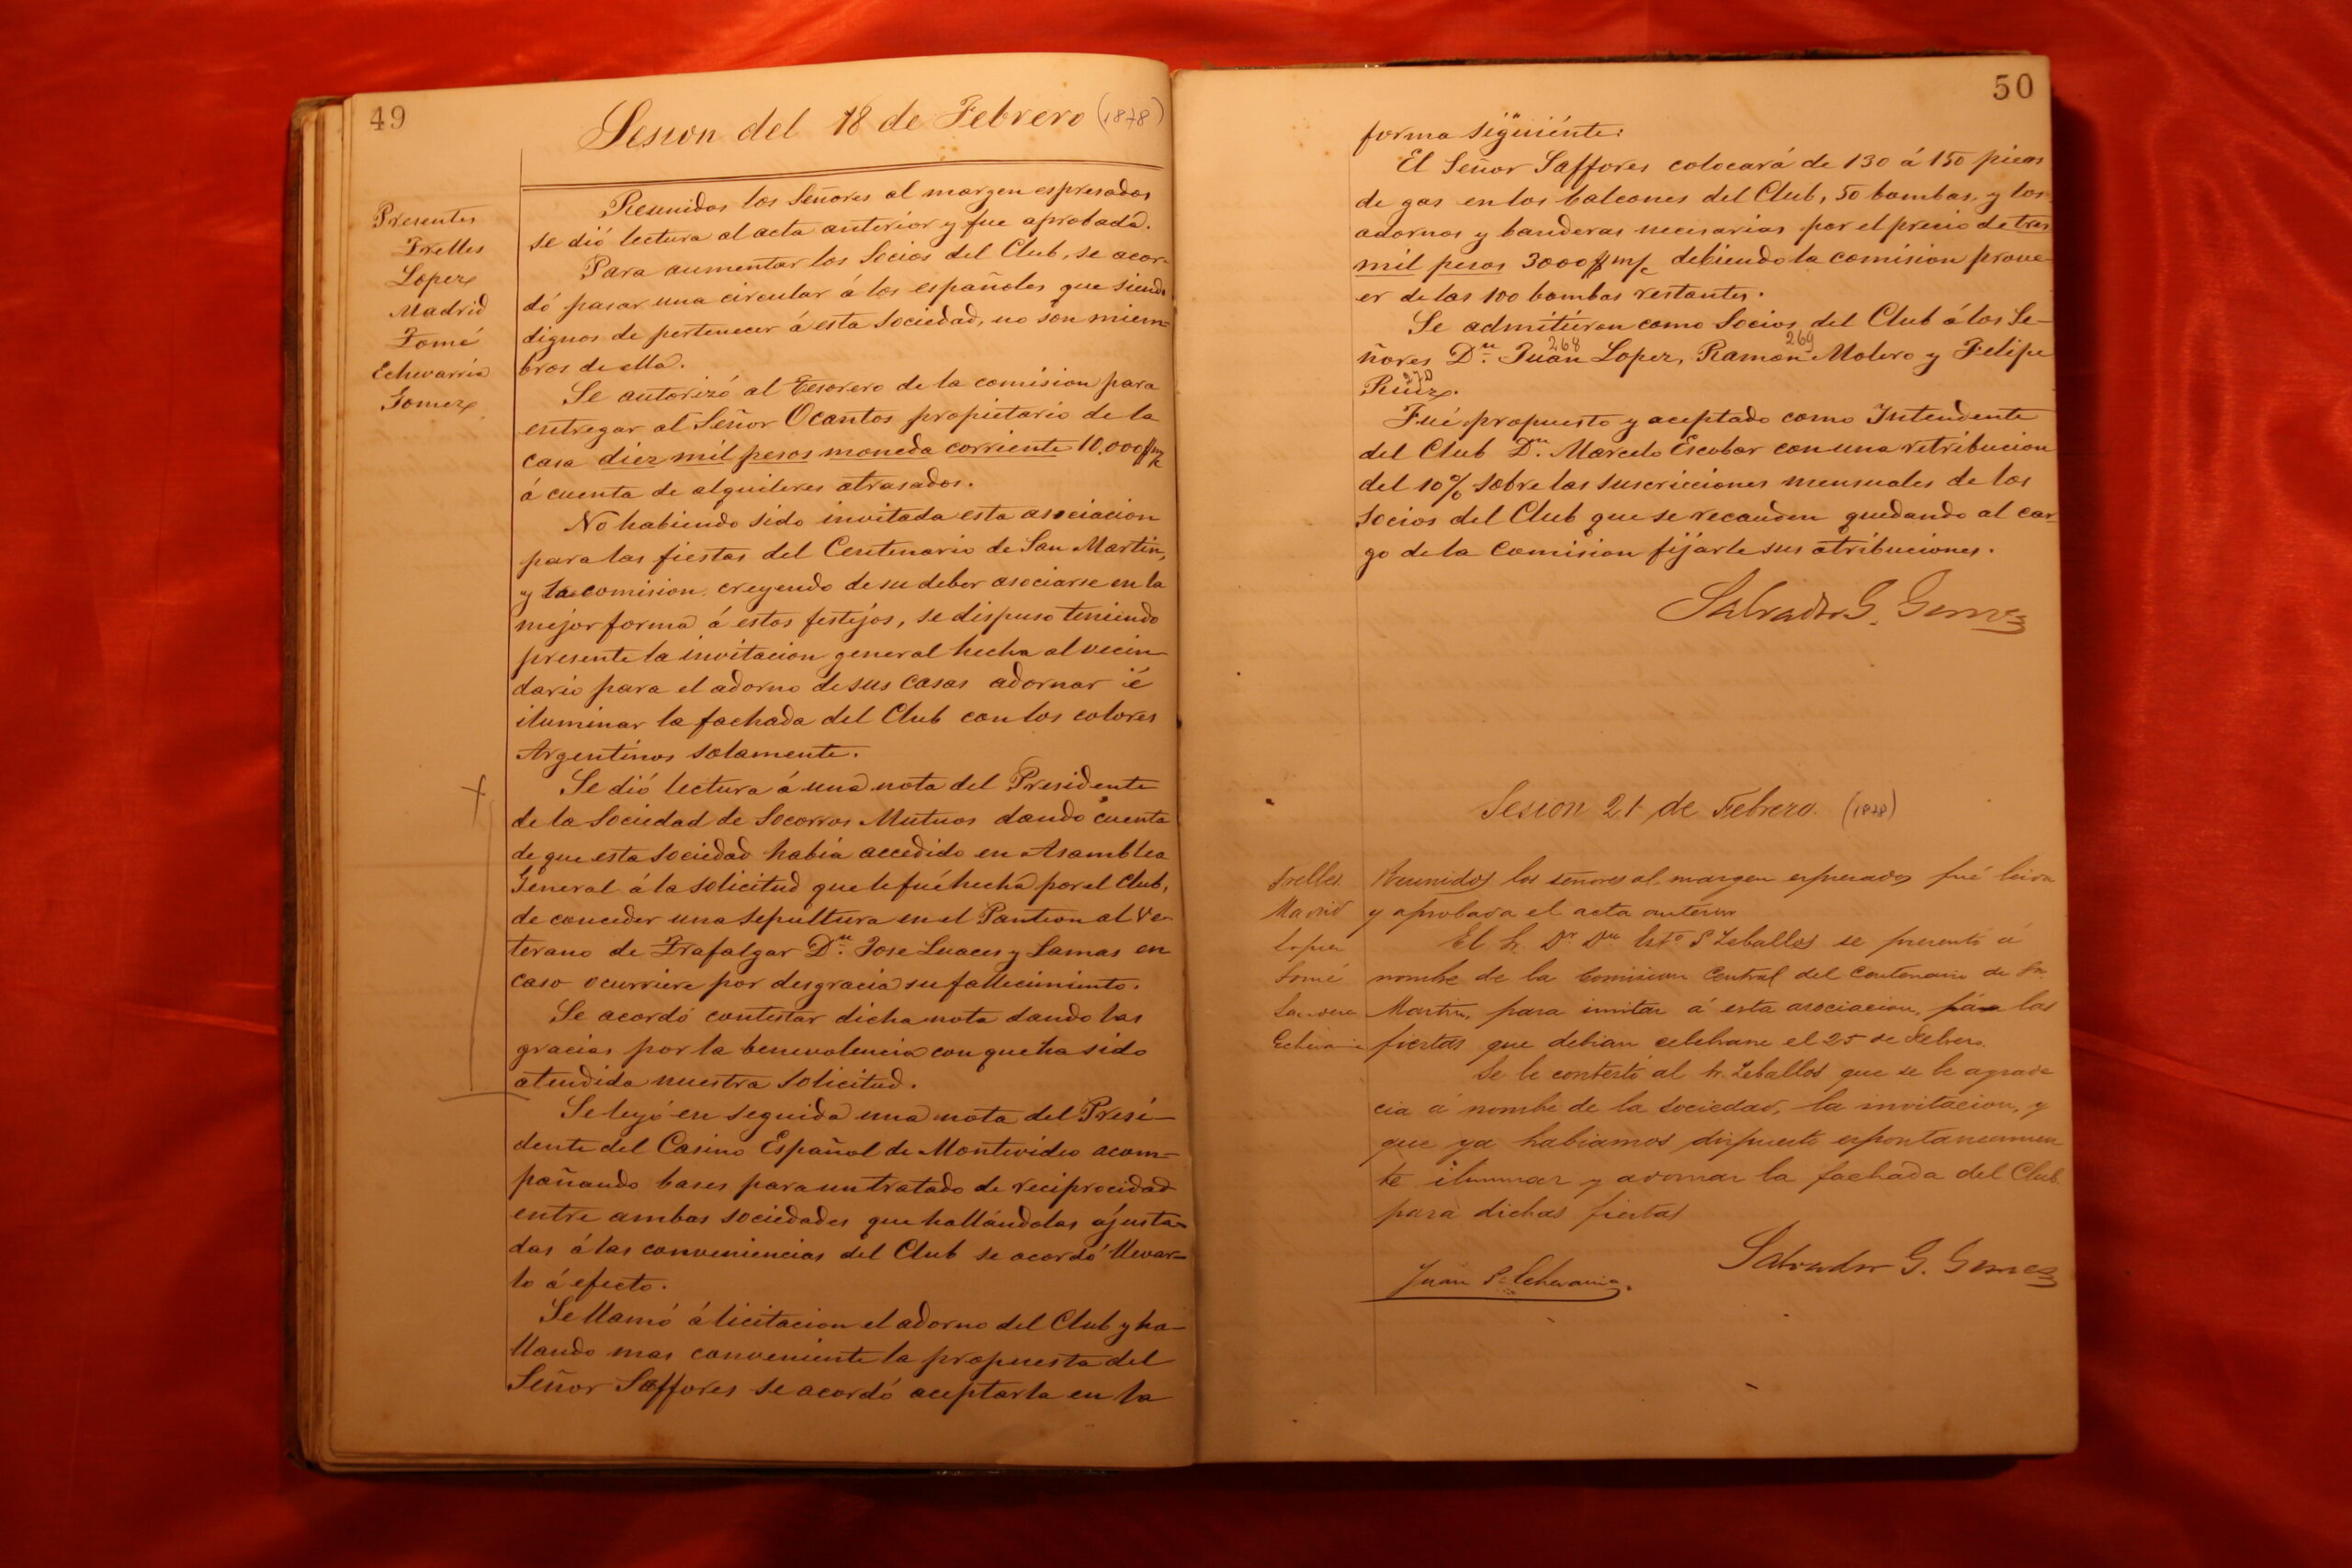 49
Sesion del 18 de Febrero (1878)
Presentes
Trelles
Lopez
Madrid
Tomé
Echevarria
Gomez
Reunidos los Señores al margen espresados
se dió lectura al acta anterior y fue aprobada.
Para aumentar los Socios del Club, se acor-
dó pasar una circular á los españoles que siendo
dignos de pertenecer á esta Sociedad, no son miem-
bros de ella.
Se autorizó al Tesorero de la comision para
entregar al Señor Ocantos propietario de la
casa diez mil pesos moneda corriente 10.000 $ m/c
á cuenta de alquileres atrasados.
No habiendo sido invitada esta asociacion
para las fiestas del Centenario de San Martin,
y la comision creyendo de su deber asociarse en la
mejor forma á estos festéjos, se dispuso teniendo
presente la invitacion general hecha al vecin-
dario para el adorno de sus casas adornar é
iluminar la fachada del Club con los colores
Argentinos solamente.
Se dió lectura á una nota del Presidente
de la Sociedad de Socorros Mutuos dando cuenta
de que esta sociedad habia accedido en Asamblea
General á la solicitud que le fué hecha por el Club,
de conceder una sepultura en el Panteon al Ve-
terano de Trafalgar Dn. Jose Luaces y Lamas en
caso ocurriere por desgracia su fallecimiento.
Se acordó contestar dicha nota dando las
gracias por la benevolencia con que ha sido
atendida nuestra solicitud.
Se leyó en seguida una nota del Presi-
dente del Casino Español de Montevideo acom-
pañando bases para un tratado de reciprocidad
entre ambas sociedades que hallándolas ajusta-
das á las conveniencias del Club se acordó llevar-
lo á efecto.
Se llamó á licitacion el adorno del Club y ha-
llando mas conveniente la propuesta del
Señor Saffores se acordó aceptarla en la
50
forma siguiente:
El Señor Saffores colocará de 130 á 150 picos
de gas en los balcones del Club, 50 bombas y los
adornos y banderas necesarias por el precio de tres
mil pesos 3000 $ m/c debiendo la comision prove-
er de las 100 bombas restantes.
Se admitiéron como Socios del Club á los Se-
268 269
ñores Dn. Juan Lopez, Ramon Molero y Felipe
270
Ruiz.
Fué propuesto y aceptado como Intendente
del Club Dn. Marcelo Escobar con una retribucion
del 10% sobre las suscriciones mensuales de los
Socios del Club que se recauden quedando al car-
go de la Comision fijarle sus atribuciones.
Salvador G. Gomez
Sesion 21 de Febrero. (1878)
Trelles
Madrid
Lopez
Tomé
Echevarria
Reunidos los señores al margen espresados fué leida
y aprobada el acta anterior
El Sr. Dr. Dn. Esto. S Zeballos se presentó á
nombre de la Comision Central del Centenario de Sn.
Martin, para invitar á esta asociacion, pára las
fiestas que debian celebrarse el 25 de Febrero.
Se le contestó al Sr. Zeballos que se le agrade
cia á nombre de la sociedad, la invitacion, y
que ya habiamos dispuesto espontaneamen
te iluminar y adornar la fachada del Club
para dichas fiestas
Juan S. Echevarria.
Salvador G. Gomez